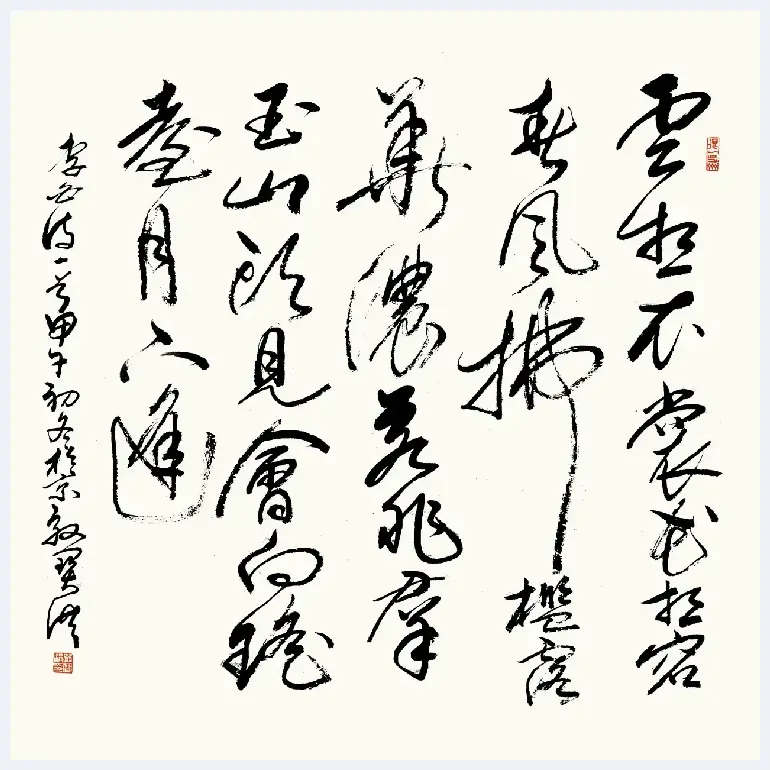 雲想衣裳花想容
春風拂檻露
華濃若非群
玉山頭見會向瑤
臺月下逢
李白詩一首甲午初冬於京